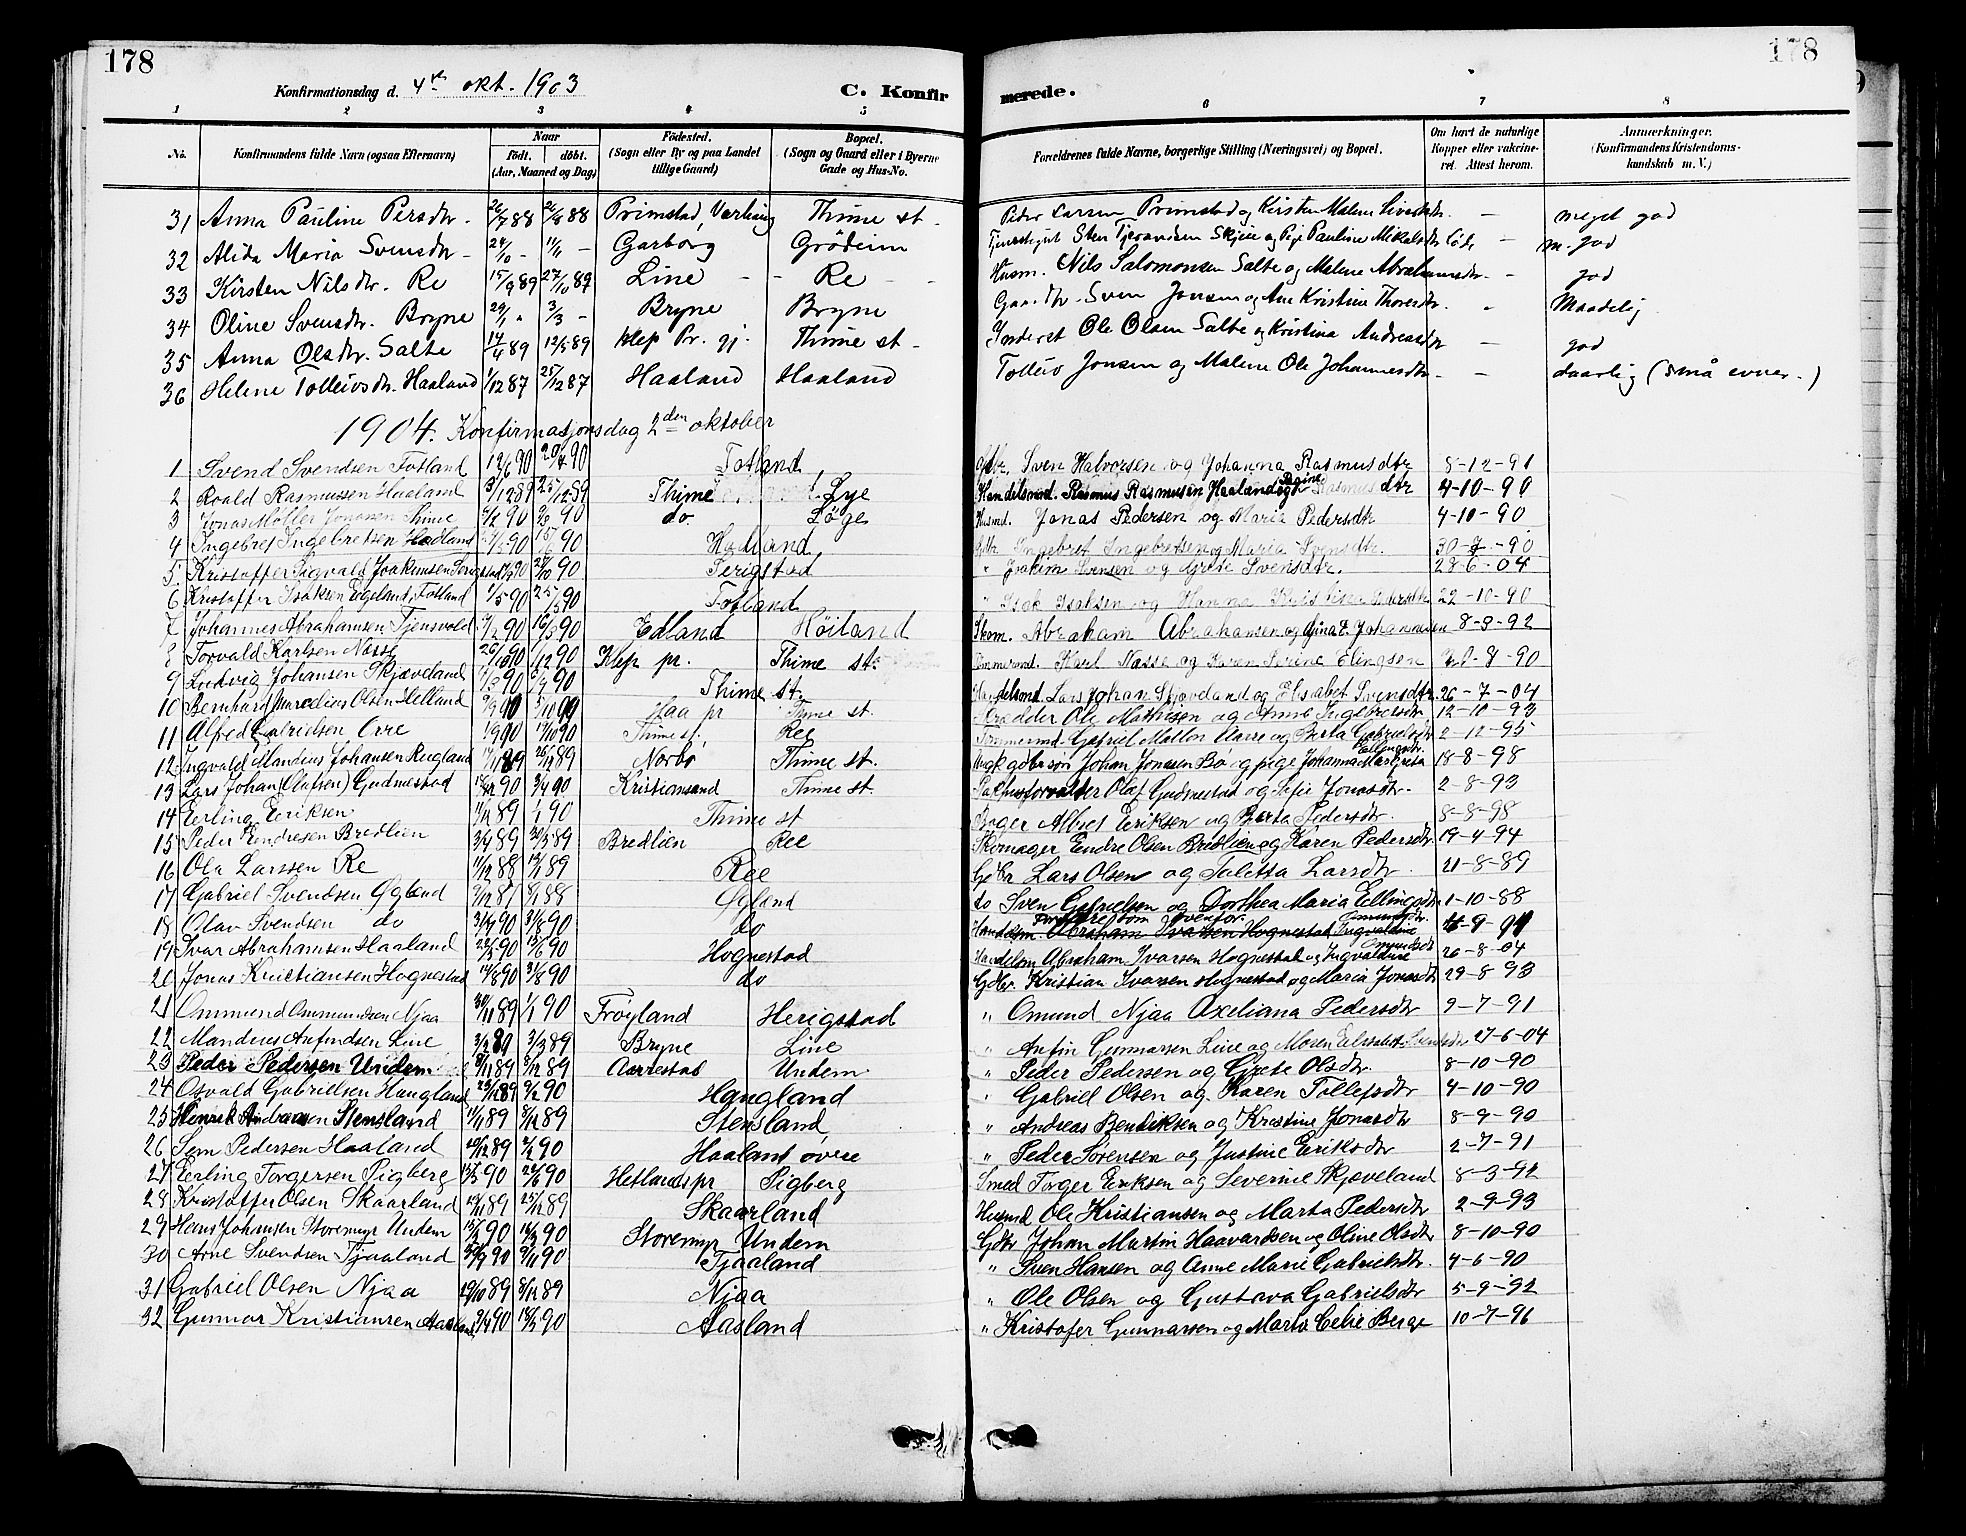 178
178
Konfirmationsdag d. 4de okt. 1903 C. Konfirmerede.
1 2 3 4 5 6 7 8
No. Konfirmandens fulde Navn (ogsaa Efternavn) Naar født. døbt. (Aar, Maaned og Dag) Fødested. (Sogn eller By og paa Landet tillige Gaard) Bopæl. (Sogn og Gaard eller i Byerne Gade og Hus-No. Forældrenes fulde Navne, borgerlige Stilling (Næringsvei) og Bopæl. Om havt de naturlige Kopper eller vakcineret. Attest herom. Anmærkninger. (Konfirmandens Kristendomskundskab m. V.)
31 Anna Pauline Persdtr. 26/7 88 26/8 88 Primstad, Varhaug Thime st. Peder Larsen Primstad og Kirsten Malene Sivertsdtr. – meget god
32 Alida Maria Svensdtr – 24/10 – 11/11 – Garborg Grødeim Sten Tjerandsen Skjeie og Pige Pauline Mikalsdtr – m. god
33 Kirsten Nilsdtr. Re 15/9 89 27/10 89 Line Re Husm. Nils Salomonsen Salte og Malene Abrahamsdtr. – god
34 Oline Svensdtr. Bryne 29/1 " 3/3 – Bryne Bryne Gaardbr. Sven Jonsen og Ane Kristine Thoresdtr. " Maadelig
35 Anna Olsdtr. Salte 14/4 89 12/5 89 Klep Pr. gj. Thime st – Inderst Ole Olsen Salte og Kristina Andreasdtr – god
36 Helene Tolleivsdtr. Haaland 1/12 87 25/12 87 Haaland Haaland Tolleiv Jonsen og Malene Ole Johannesdtr. – daarlig (små evner.)
1904. Konfirmasjonsdag 2den oktober
1 Svend Svendsen Fotland 12/6 90 20/7 90 Fotland Gdbr. Sven Halvorsen og Johanna Rasmusdtr 8-12-91
2 Roald Rasmussen Haaland 3/12 89 25/12 89 Thime Lye Handelsmd. Rasmus Rasmussen Haaland og Rasmusdtr 4-10-90
3 Jonas Møller Jonasen Thime 90 90 do. Løge Husmd. Jonas Pedersen og Maria Pedersdtr 4-10-90
4 Ingebret Ingebretsen Hadland 90 90 Hadland Gdbr. Ingebret Ingebretsen og Maria Svensdtr. 30-7-90
5 Kristoffer Sigvald Joakimsen Serigstad 90 90 Serigstad " Joakim Svensen og Grete Svensdtr. 28-6-04
6 Kristoffer Isaksen Egeland, Fotland 1/5 90 25/5 90 Fotland " Isak Isaksen og Hanna Kristine Pedersdtr 22-10-90
7 Johannes Abrahamsen Tjensvold 90 90 Edland Høiland Skom. Abraham Abrahamsen og Gina E. Johannesen 8-3-92
8 Torvald Karlsen Næsse 26/10 90 1/12 90 Klep pr. Thime st. Karl Næsse og Karen Serine Elingsen 20-8-90
9 Ludvig Johansen Skjæveland 90 90 Thime st. Handelsmd Lars Johan Skjæveland og Elisabet Svensdtr. 26-7-04
10 Bernhard Marcelius Olsen Helland 90 5/10 90 Haa pr Thime st. Ole Mathisen og Anne Ingebretsdtr 12-10-93
11 Alfred Gabrielsen Orre 90 90 Thime st. Ree Tømmermd. Gabriel Berta Gabrielsdtr 2-12-95
12 Ingvald Mandius Johansen Rugland 89 89 Norbø Thime st. Ungk gdbrsøn Johan Jonassen Bø og pige Johanna Margreta Ellingsdtr. 18-8-98
13 Lars Johan (Olafsen) Gudmestad 90 3/4 90 Kristiansand Thime st. Pakhusforvalter Olaf Gudmestad og Sofie Jonasdtr. 2-8-93
14 Eerling Eeriksen 89 1/1 90 Thime st Bager Albret Eeriksen og Berta Pedersdtr. 8-8-98
15 Peder Eendresen Bredlien 3/4 89 30/5 89 Bredlien Ree Skomager Eendre Olsen Bredlien og Karen Pedersdtr. 19-4-94
16 Ole Larssen Re 11/12 88 13/1 89 Ree Gdbr Lars Olsen og Taletta Larsdtr. 21-8-89
17 Gabriel Svendsen Øgland 3/12 87 8/1 88 Øgland do Sven Gabrielsen og Dorthea Maria Ellingsdtr 1-10-88
18 Olav Svendsen do 31/7 90 31/8 90 do Forældre som ovenfor. Handelsm Abraham Ivarsen Hognestad Ingvaldine Omundsdtr.
19 Ivar Abrahamsen Haaland 22/5 90 15/6 90 Hognestad Handelsm Abraham Ivarsen Hognestad og Ingvaldine Omundsdtr 26-8-04
20 Jonas Kristiansen Hognestad 14/8 90 31/8 90 do Gdbr. Kristian Ivarsen Hognestad og Maria Jonasdtr 29-8-93
21 Ommund Ommundsen Njaa 30/11 89 1/1 90 Frøyland Herigstad " Omund Njaa Axeliana Pedersdtr 9-7-91
22 Mandius Anfindsen Line 3/2 89 3/3 89 Bryne Line " Anfin Gunnarsen Line og Maren Elisabet Svensdtr 27-6-04
23 Peder Pedersen Undem 89 89 Aarrestad Undem. " Peder Pedersen og Grete Olsdtr. 8-10-90
24 Osvald Gabrielsen Haugland 25/12 89 2/2 90 Haugland " Gabriel Olsen og Karen Tollefsdtr 4-10-90
25 Henrik Andreasen Stensland 89 8/12 89 Stensland " Andreas Bendiksen og Kristine Jonasdtr 8-9-90
26 Sem Pedersen Haaland 29/12 89 2/2 90 Haaland øvre " Peder Sørensen og Justine Eeriksdtr 2-7-91
27 Eerling Torgersen Sigberg 13/5 90 22/6 90 Hetlands pr Sigberg Smed Torger Eeriksen og Severine Skjæveland 8-3-92
28 Kristoffer Olsen Skaarland 89 25/12 89 Skaarland Husmd Ole Kristiansen og Marta Pedersdtr 2-9-93
29 Hans Johansen Storemyr Undem 90 90 Storemyr Undem Gdbr Johan Martin Haavardsen og Oline Olsdtr 8-10-90
30 Arne Svendsen Tjaaland 90 9/11 90 Tjaaland " Sven Hansen og Anne Marie Gabrielsdtr. 4-6-90
31 Gabriel Olsen Njaa 29/10 89 8/12 89 Njaa " Ole Olsen og Gustava Gabrielsdtr 5-9-92
32 Gunnar Kristiansen Aasland 90 90 Aasland " Kristofer Gunnarsen og Marta Celie Berge 10-7-96